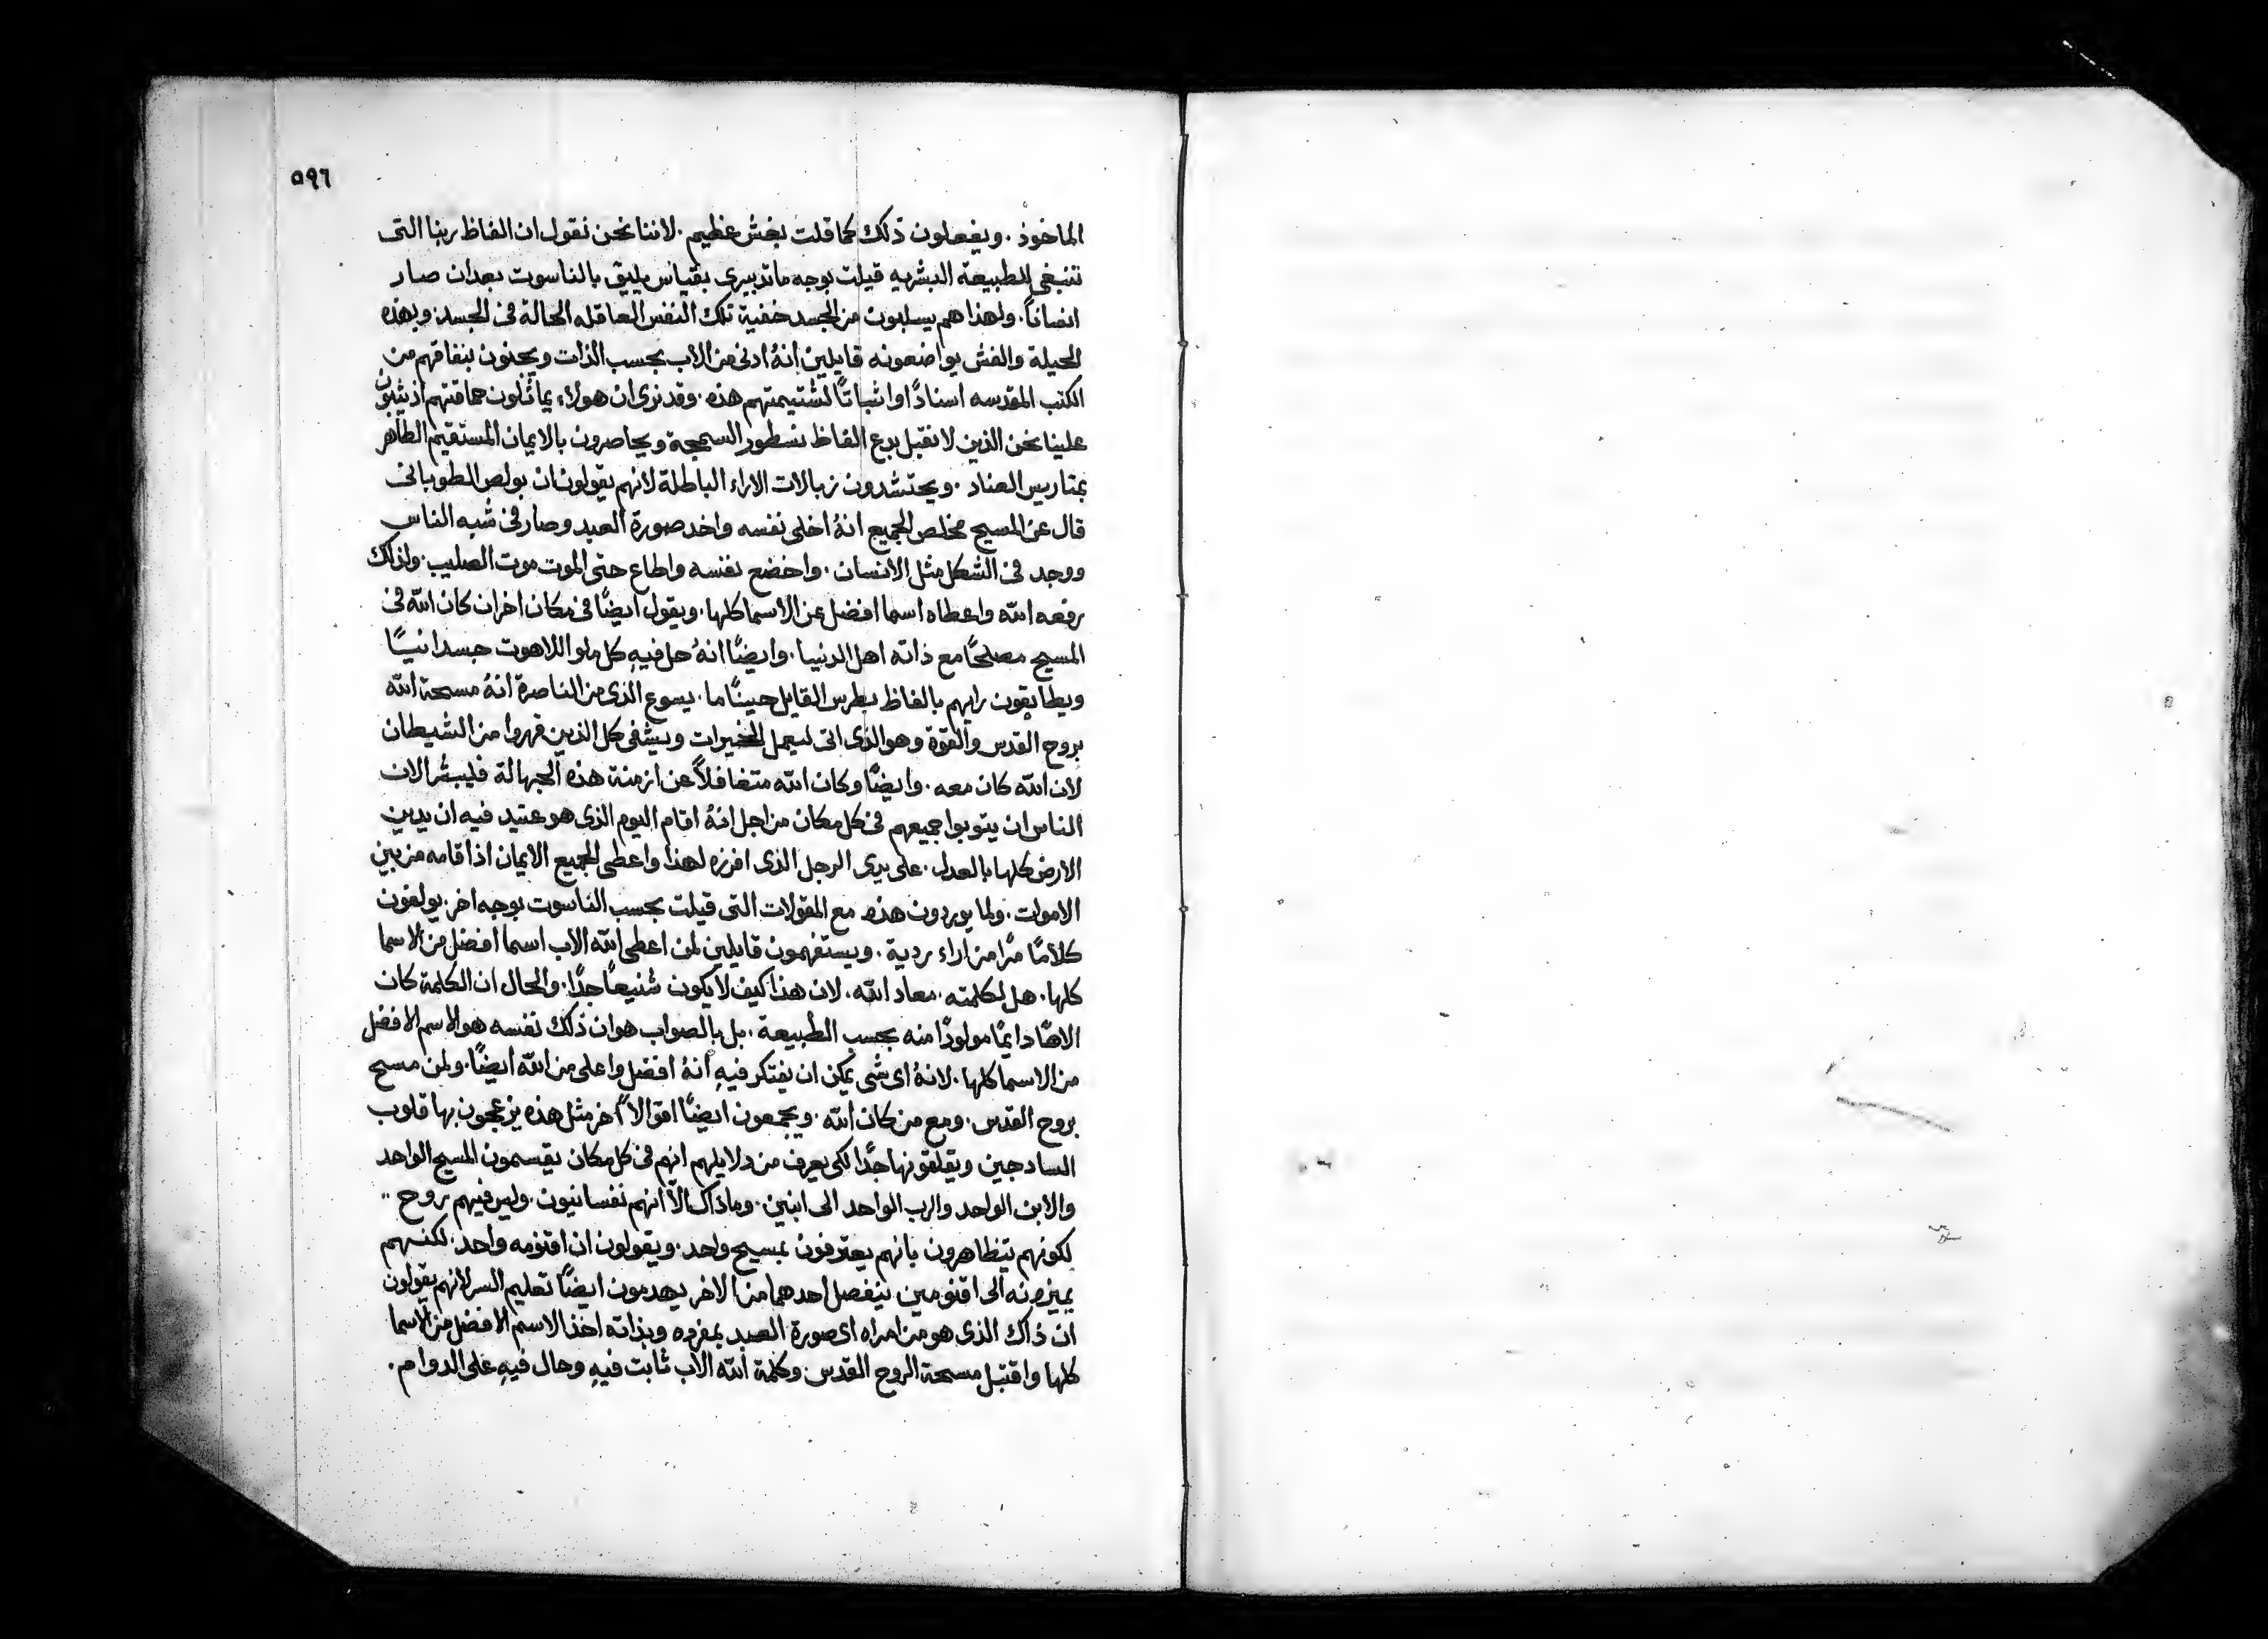 ٥٩٦
الماخوذ. ويفعلون ذلك كما قلت بغش عظيم. لاننا نحن نقول ان الفاظ ربنا التى
تنبغى للطبيعة البشريه قيلت بوجه ما تدبيرى بقياس يليق بالناسوت بعد ان صار
انساناً. ولهذا هم يسلبون من الجسد خفية تلك النفس العاقله الحالة فى الجسد وبهذه
الحيلة والغش يواضعونه قايلين انهُ ادنى من الاب بحسب الذات ويجنون بنفاقهم من
الكتب المقدسه اسنادًا واثباتًا لشتيمتهم هذه. وقد نرى ان هولاء يماثلون حماقتهم اذ يثبون
علينا نحن الذين لا نقبل بدع الفاظ نسطور السمجة ويحاصرون بالايمان المستقيم الطاهر
بمتاريس العناد. ويحتشدون زبالات الاراء الباطلة لانهم يقولون ان بولص الطوبانى
قال عن المسيح مخلص الجميع انهُ اخلى نفسه واخد صورة العبد وصار فى شبه الناس
ووجد فى الشكل مثل الانسان. واخضع نفسه واطاع حتى الموت موت الصليب. ولذلك
رفعه الله واعطاه اسما افضل عن الاسما كلها. ويقول ايضًا فى مكان اخر ان كان الله فى
المسيح مصلحًا مع ذاته اهل الدنيا. وايضًا انهُ حل فيهِ كل ملو اللاهوت جسدانيًا
ويطابقون رايهم بالفاظ بطرس القايل حينًا ما. يسوع الذى من الناصرة انهُ مسحه الله
بروح القدس والقوة وهو الذى اتى ليعمل الخيرات ويشفى كل الذين قهروا من الشيطان
لان الله كان معه. وايضًا وكان الله متغافلاً عن ازمنة هذه الجهالة فليبشر الان
الناس ان يتوبوا جميعهم فى كل مكان من اجل انهُ اقام اليوم الذى هو عتيد فيه ان يدين
الارض كلها بالعدل. على يدى الرجل الذى افرزه لهذا واعطى الجميع الايمان اذ اقامه من بين
الاموات. ولما يوردون هذه مع المقولات التى قيلت بحسب الناسوت بوجه اخر. يولفون
كلامًا مرًا من اراء ردية. ويستفهمون قايلين لمن اعطى الله الاب اسما افضل من الاسما
كلها. هل لكلمته. معاد الله. لان هذا كيف لا يكون شنيعاً جدًا. والحال ان الكلمة كان
الاهًا دايمًا مولودًا منه بحسب الطبيعة. بل بالصواب هو ان ذلك نفسه هو الاسم الافضل
من الاسما كلها. لانهُ اى شى يمكن ان يفتكر فيهِ انهُ افضل واعلى من الله ايضًا. ولمن مسح
بروح القدس. ومع من كان الله. ويجمعون ايضًا اقوالاً اخر مثل هذه يزعجون بها قلوب
السادجين ويقلقونها جدًا لكى يعرف من دلايلهم انهم فى كل مكان يقسمون المسيح الواحد
والابن الواحد والرب الواحد الى ابنين. وما ذاك الا انهم نفسانيون. وليس فيهم روح
لكونهم يتظاهرون بانهم يعترفون بمسيح واحد. ويقولون ان اقنومه واحد. لكنهم
يميزونه الى اقنومين ينفصل احدهما من الاخر يهدمون ايضًا تعليم السر لانهم يقولون
ان ذاك الذى هو من امراه اى صورة العبد بمفرده وبذاته اخذ الاسم الافضل من الاسما
كلها واقتبل مسحة الروح القدس. وكلمة الله الاب ثابت فيهِ وحال فيهِ على الدوام.